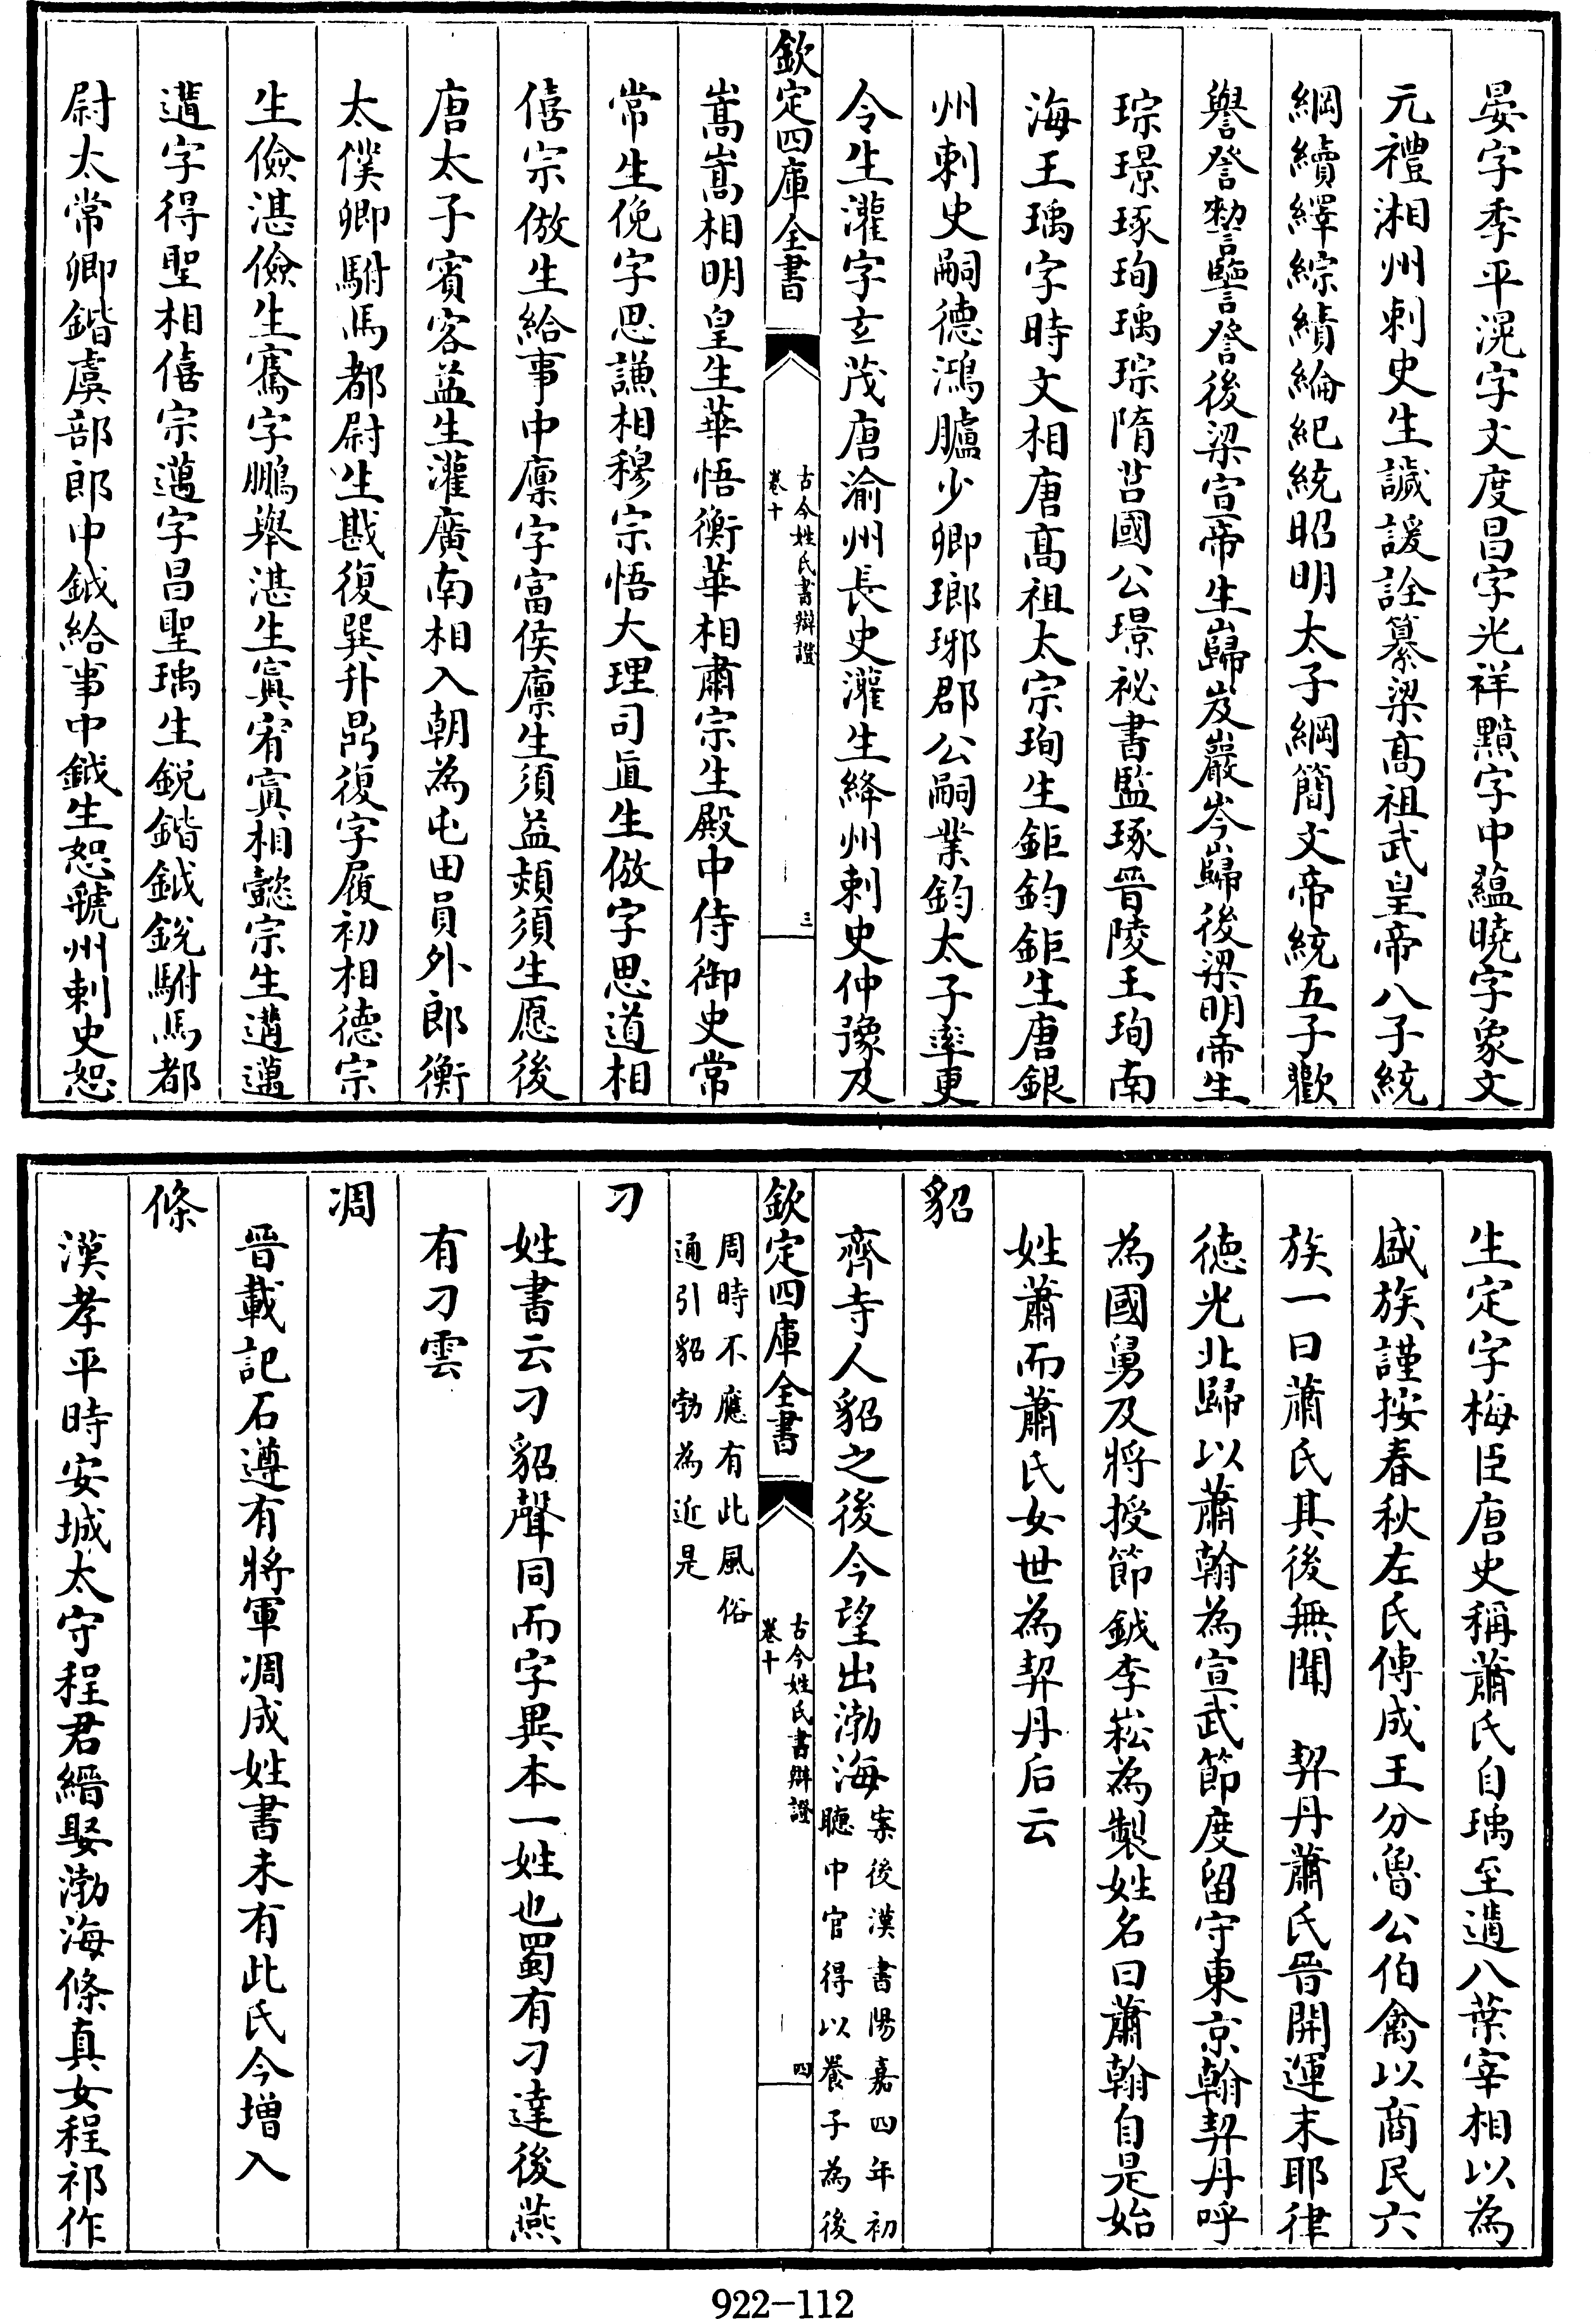 晏字季平滉字文度昌字光祥黯字中藴曉字象文
元禮湘州刺史生諴諼詮纂梁髙祖武皇帝八子統
綱續繹綜績綸紀統昭明太子綱簡文帝統五子歡
譽詧𧫷譼詧後梁宣帝生巋岌巖岑巋後梁明帝生
琮璟琢珣瑀琮隋莒國公璟祕書監琢晉陵王珣南
海王瑀字時文相唐髙祖太宗珣生鉅鈞鉅生唐銀
州刺史嗣德鴻臚少卿瑯琊郡公嗣業鈞太子率更
令生灌字玄茂唐渝州長史灌生絳州刺史仲豫及
欽定四庫全書
古今姓氏書辯證
卷十
三
嵩嵩相明皇生華悟衡華相肅宗生殿中侍御史常
常生俛字思謙相穆宗悟大理司直生倣字思道相
僖宗倣生給事中廩字富侯廩生須益頍須生愿後
唐太子賓客益生灌廣南相入朝為屯田員外郎衡
太僕卿駙馬都尉生戡復巽升鼎復字履初相德宗
生儉湛儉生騫字鵬舉湛生寘宥寘相懿宗生遘邁
遘字得聖相僖宗邁字昌聖瑀生銳鍇鉞銳駙馬都
尉太常卿鍇虞部郎中鉞給事中鉞生恕虢州刺史恕
生定字梅臣唐史稱蕭氏自瑀至遘八葉宰相以為
盛族謹按春秋左氏傳成王分魯公伯禽以商民六
族一曰蕭氏其後無聞　契丹蕭氏晉開運末耶律
徳光北歸以蕭翰為宣武節度留守東京翰契丹呼
為國舅及將授節鉞李崧為製姓名曰蕭翰自是始
姓蕭而蕭氏女世為契丹后云
貂
齊寺人貂之後今望出渤海案後漢書陽嘉四年初
聽中官得以養子為後
欽定四庫全書
古今姓氏書辯證
卷十
四
周時不應有此風俗
通引貂勃為近是
刁
姓書云刁貂聲同而字異本一姓也蜀有刁達後燕
有刁雲
凋
晉載記石遵有將軍凋成姓書未有此氏今增入
條
漢孝平時安城太守程君縉娶渤海條真女程祁作
922-112